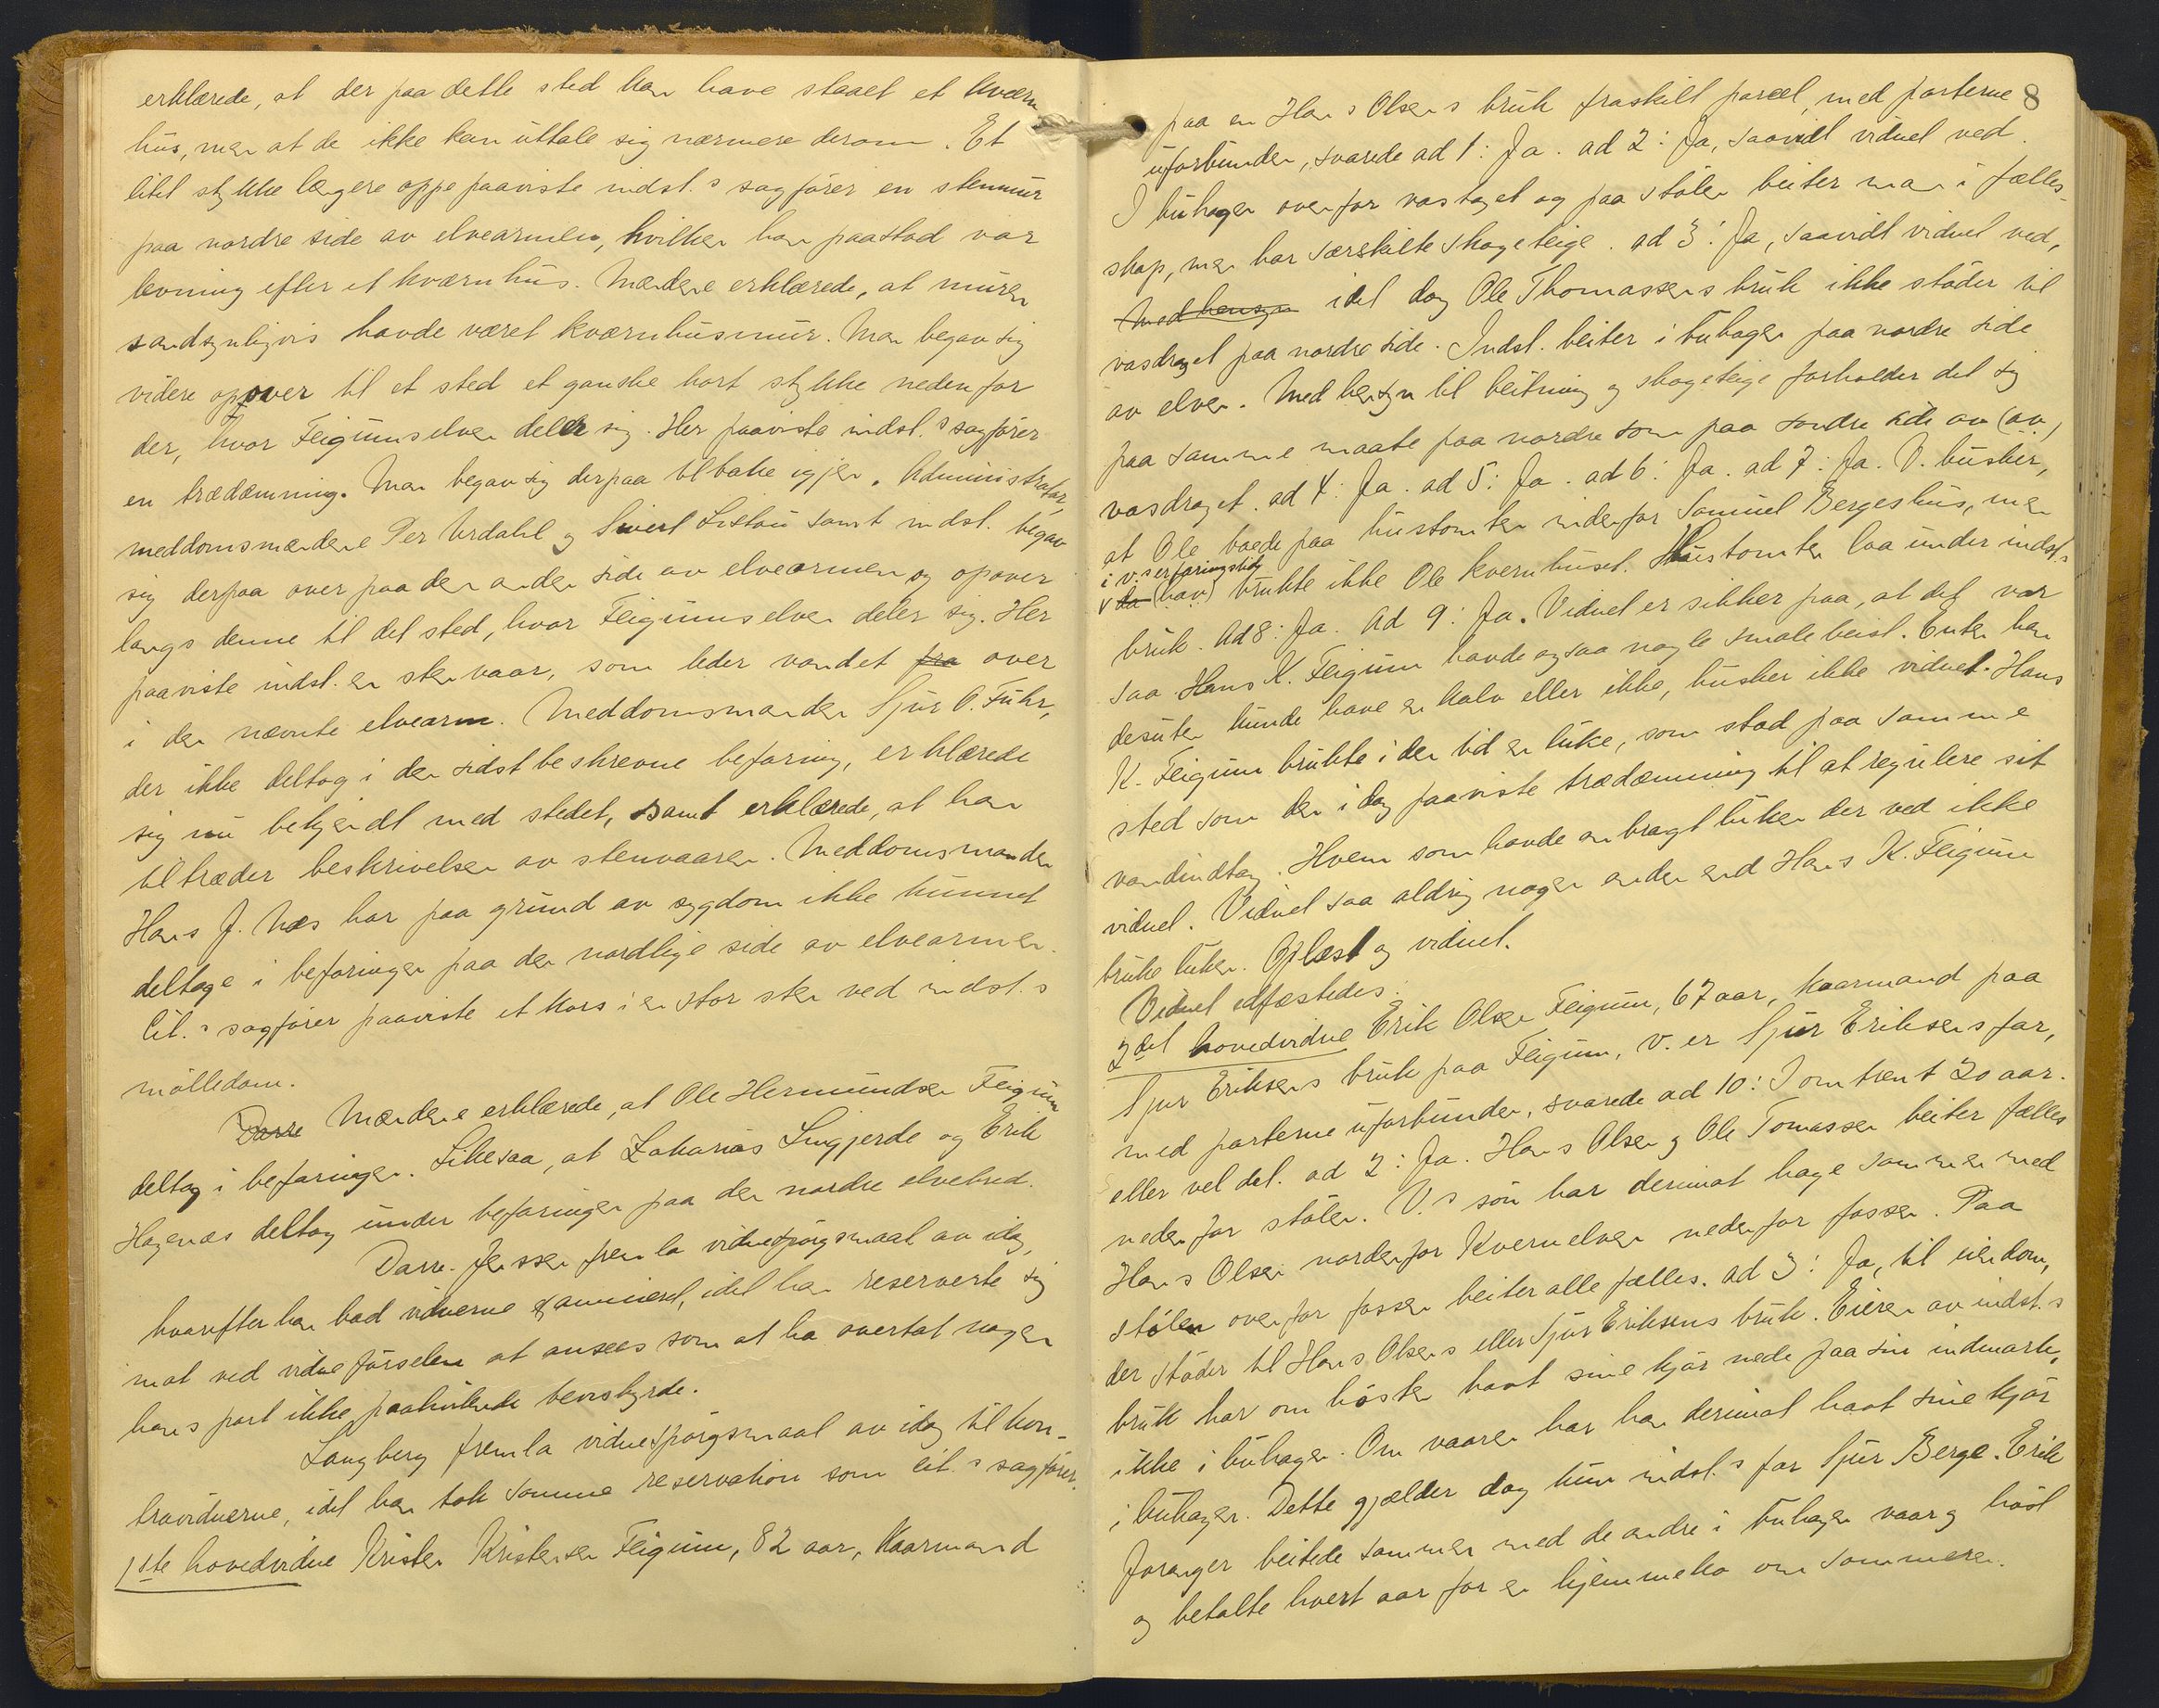 erklærede, at der paa dette sted kan have staaet et kværn
hus, men at de ikke kan uttale sig nærmere derom. Et
litet stykke længere oppe paaviste indst.s sagfører en stenmur
paa nordre side av elvearmen, hvilken han paastod var
levning efter et kværnhus. Mændene erklærede, at muren
sandsynligvis havde været kværnhusmur. Man begav sig
videre opover til et sted et ganske kort stykke nedenfor
der, hvor Feigumselven deler sig. Her paaviste indst.s sagfører
en trædæmning. Man begav sig derpaa tilbake igjen. Administrator,
meddomsmændene Per Urdahl og Sivert Listou samt indst. begav
sig derpaa over paa den anden side av elvearmen og opover
langs denne til det sted, hvor Feigumselven deler sig. Her
paaviste indst. en stenvaar, som leder vandet fra over
i den nævnte elvearm. Meddomsmanden Sjur O. Fuhr,
der ikke deltog i den sidst beskrevne befaring, erklærede
sig nu bekjendt med stedet, samt erklærede, at han
tiltræder beskrivelsen av stenvaaren. Meddomsmanden
Hans J. Næs har paa grund av sygdom ikke kunnet
deltage i befaringen paa den nordlige side av elvearmen.
Cit.s sagfører paaviste et kors i en stor sten ved indst.s
mølledam.
Darre Mændene erklærede, at Ole Hermundsen Feigum
deltog i befaringen. Likesaa, at Zakarias Lingjerde og Erik
Hagenæs deltog under befaringen paa den nordre elvebred.
Darre-Jenssen fremla vidnespørgsmaal av idag,
hvorefter han bad vidnerne examineret, idet han reserverte sig
mot ved vidneførselen at ansees som at ha overtat nogen
hans part ikke paahvilende bevisbyrde.
Langberg fremla vidnespørgsmaal av idag til kon-
travidnerne, idet han tok samme reservation som cit.s sagfører.
1ste hovedvidne Kristen Kristensen Feigum, 82 aar, kaarmand
8
paa en Hans Olsens bruk fraskilt parcel, med parterne
uforbunden, svarede ad 1: Ja. ad 2: Ja, saavidt vidnet ved.
I buhagen ovenfor vasdraget og paa stølen beiter man i fælles
skap, men har særskilte skogeteige. ad 3: Ja, saavidt vidnet ved,
Med hensyn idet dog Ole Thomassens bruk ikke støder til
vasdraget paa nordre side. Indst. beiter i buhagen paa nordre side
av elven. Med hensyn til beitning og skogeteige forholder det sig
paa samme maate paa nordre som paa søndre side av (av)
vasdraget. ad 4: Ja. ad 5: Ja. ad 6: Ja. ad 7: Ja. V. husker,
at Ole boede paa hustomten nedenfor Samuel Bergeshus, men
i v.s erfaringstid
da (han) brukte ikke Ole kvernhuset. Hustomten laa under indst.s
bruk. Ad 8: Ja. Ad 9: Ja. Vidnet er sikker paa, at det var
saa. Hans K. Feigum havde ogsaa nogle smale beist. Enten han
desuten kunde have en kalv eller ikke, husker ikke vidnet. Hans
K. Feigum brukte i den tid en luke, som stod paa samme
sted som den i dag paaviste trædæmning til at regulere sit
vandindtag. Hvem som havde anbragt luken der ved ikke
vidnet. Vidnet saa aldrig nogen anden end Hans K. Feigum
bruke luken. Oplæst og vidnet.
Vidnet edfæstedes.
2det hovedvidne Erik Olsen Feigum, 67 aar, kaarmand paa
Sjur Eriksens bruk paa Feigum, V. er Sjur Eriksens far,
med parterne uforbunden, svarede ad 10: I omtrent 30 aar.
eller vel det. ad 2: Ja. Hans Olsen og Ole Tomassen beiter fælles
nedenfor stølen. V.s søn har derimot hage sammen med
Hans Olsen nordenfor Kvernelven nedenfor fossen. Paa
stølen ovenfor fossen beiter alle fælles. ad 3: Ja, til eiendom,
der støder til Hans Olsens eller Sjur Eriksens bruk. Eieren av indst.s
bruk har om høsten havt sine kjør nede paa sin indmark,
ikke i buhagen. Om vaaren har han derimot havt sine kjør
i buhagen. Dette gjælder dog kun indst.s far Sjur Berge. Erik
Foranger beitede sammen med de andre i buhagen vaar og høst
og betalte hvert aar for en hjemmeko om sommeren.